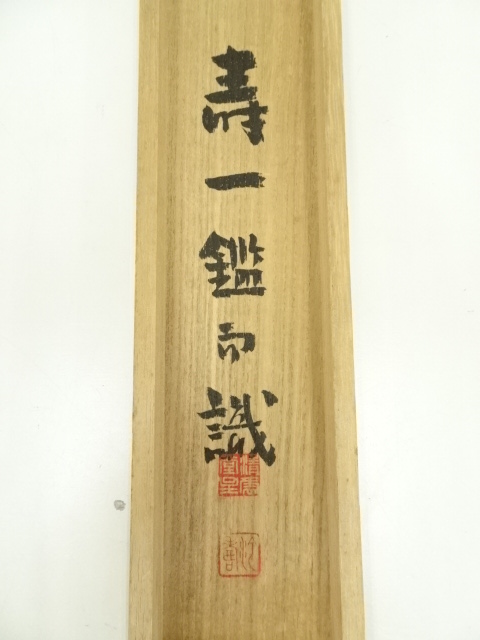 壽一鑑而識